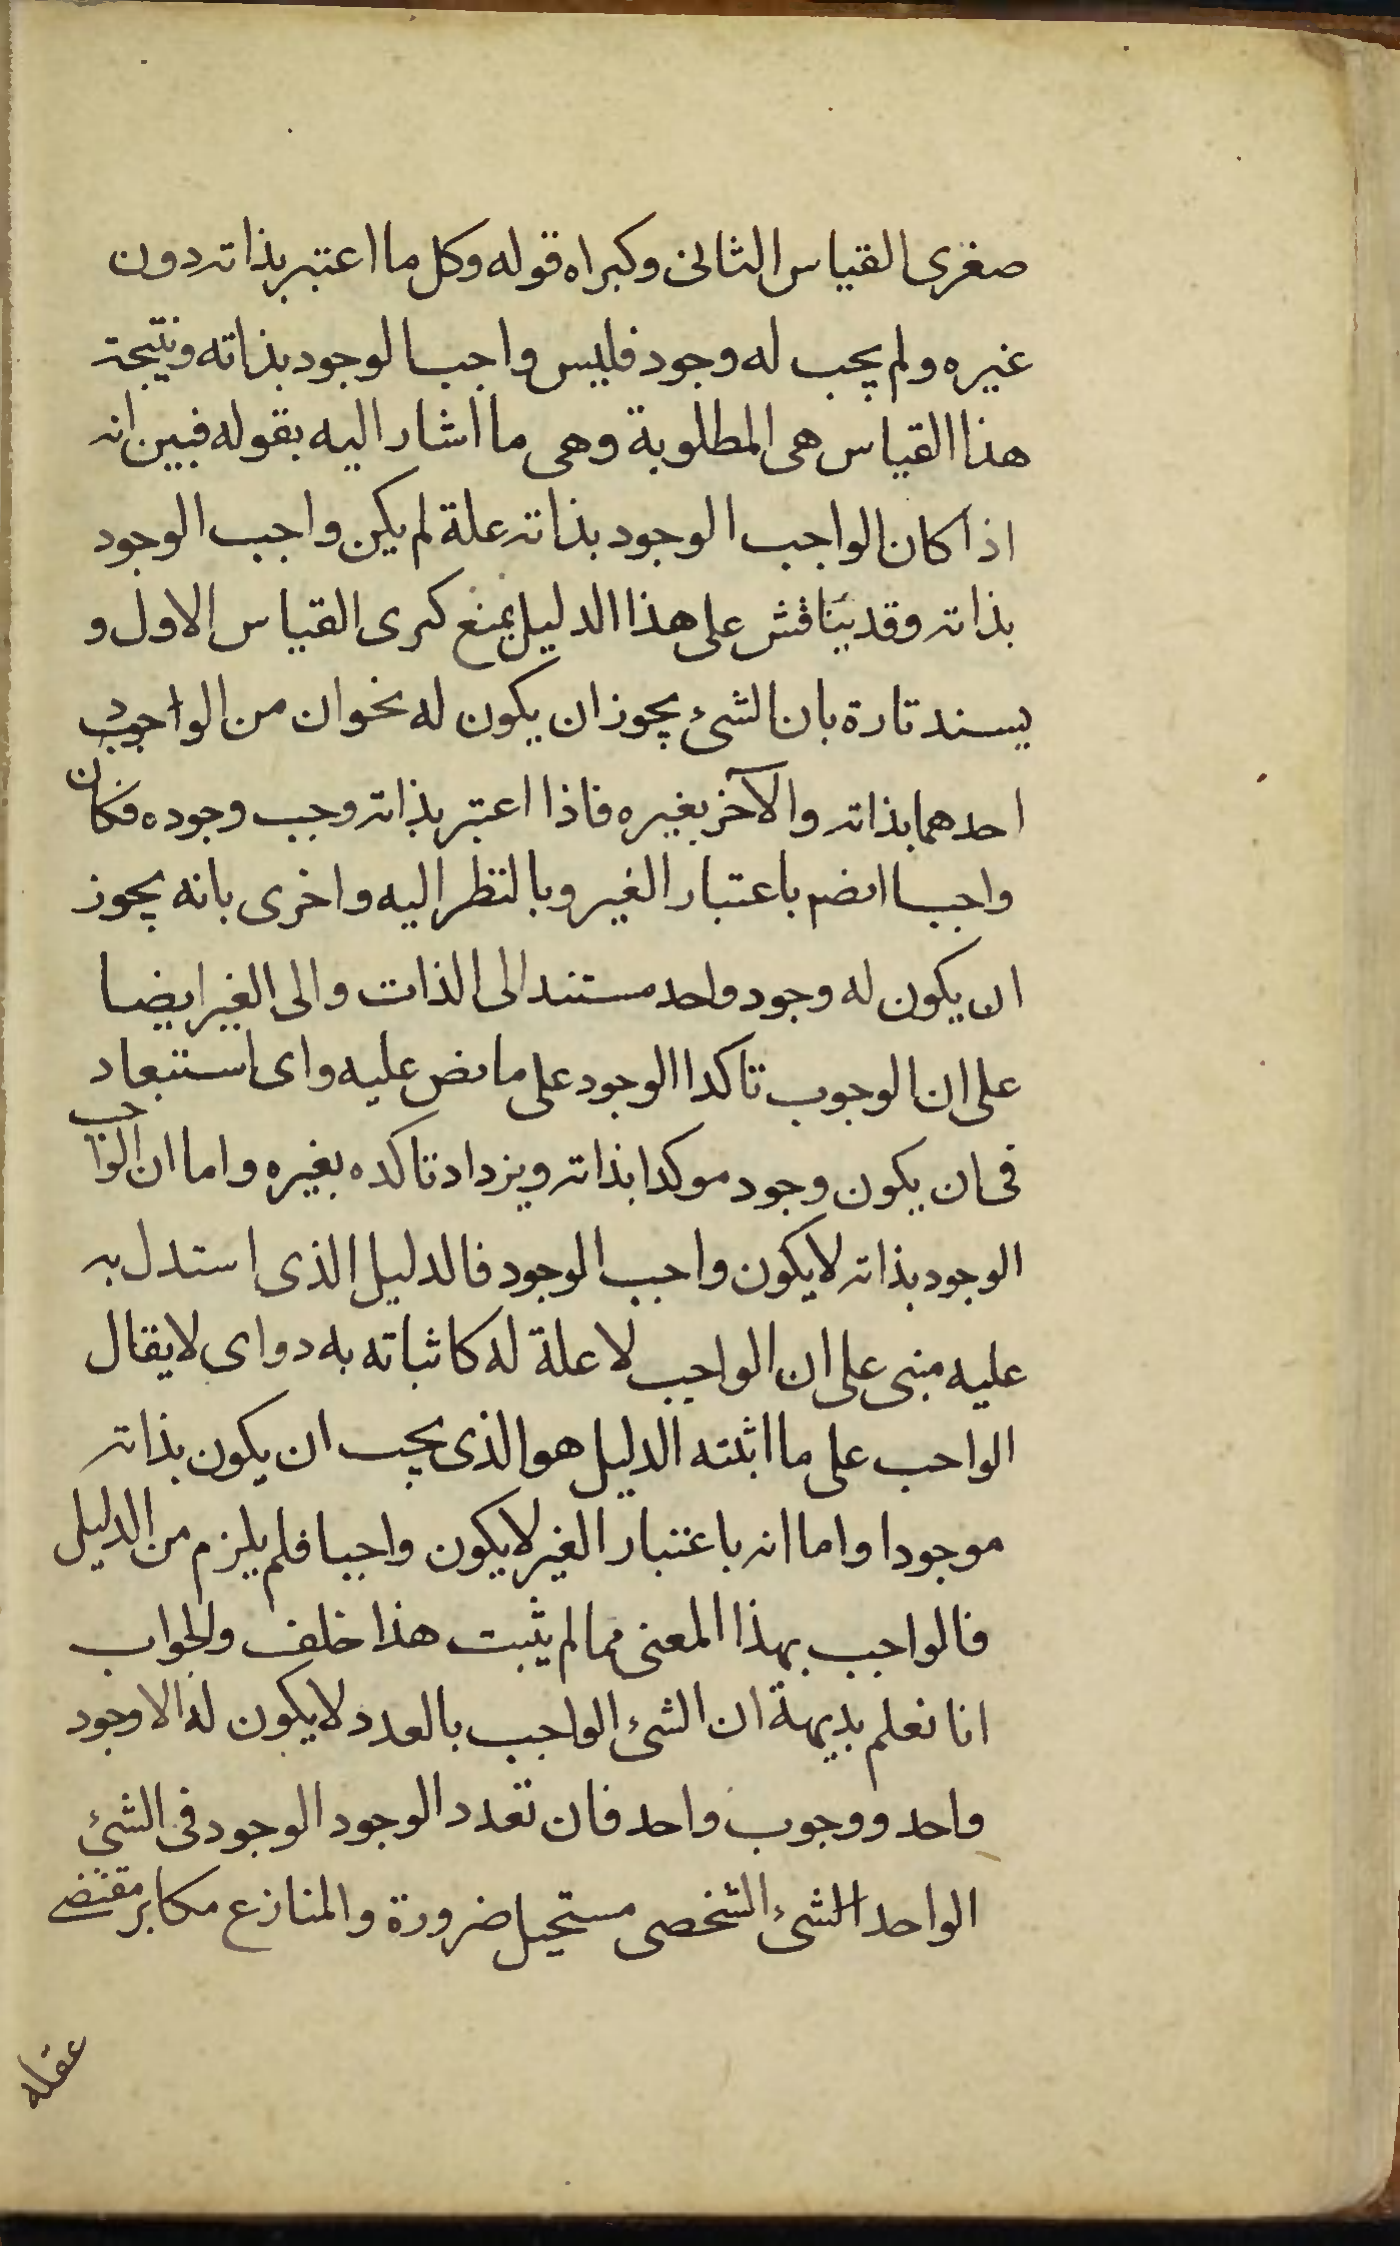 صغرى القياس الثانى وكبراه قوله وكل ما اعتبر بذاته دون
غيره ولم يجب له وجود فليس واجب الوجود بذاته ونتيجة
هذا القياس هى المطلوبة وهى ما اشار اليه بقوله فبين انه
اذا كان الواجب الوجود بذاته علة لم يكن واجب الوجود
بذاته وقد يناقش على هذا الدليل بمنع كبرى القياس الاول و
يسند تارة بان الشئ يجوز ان يكون له نحوان من الواجود
احدهما بذاته والآخر بغيره فاذا اعتبر بذاته وجب وجوده فكان
واجبا انضم باعتبار الغير وبالنظر اليه واخرى بانه يجوز
ان يكون له وجود واحد مستند الى الذات والى الغير ايضا
على ان الوجوب تاكدا الوجود على ما نص عليه واى استبعاد
فى ان يكون وجود موكدا بذاته ويزداد تاكده بغيره واما ان الواجب
الوجود بذاته لا يكون واجب الوجود فالدليل الذى استدل به
عليه مبنى على ان الواجب لا علة له كاثباته به دواى لا يقال
الواجب على ما اثبته الدليل هو الذى يجب ان يكون بذاته
موجودا واما انه باعتبار الغير لا يكون واجبا فلم يلزم من الدليل
فالواجب بهذا المعنى مما لم يثبت هذا خلف والجواب
انا نعلم بديهة ان الشئ الواجب بالعدد لا يكون له الا وجود
واحد ووجوب واحد فان تعدد الوجود الوجود فى الشئ
الواحد الشئ الشخصى مستحيل ضرورة والمنازع مكابر مقتضى
عقله